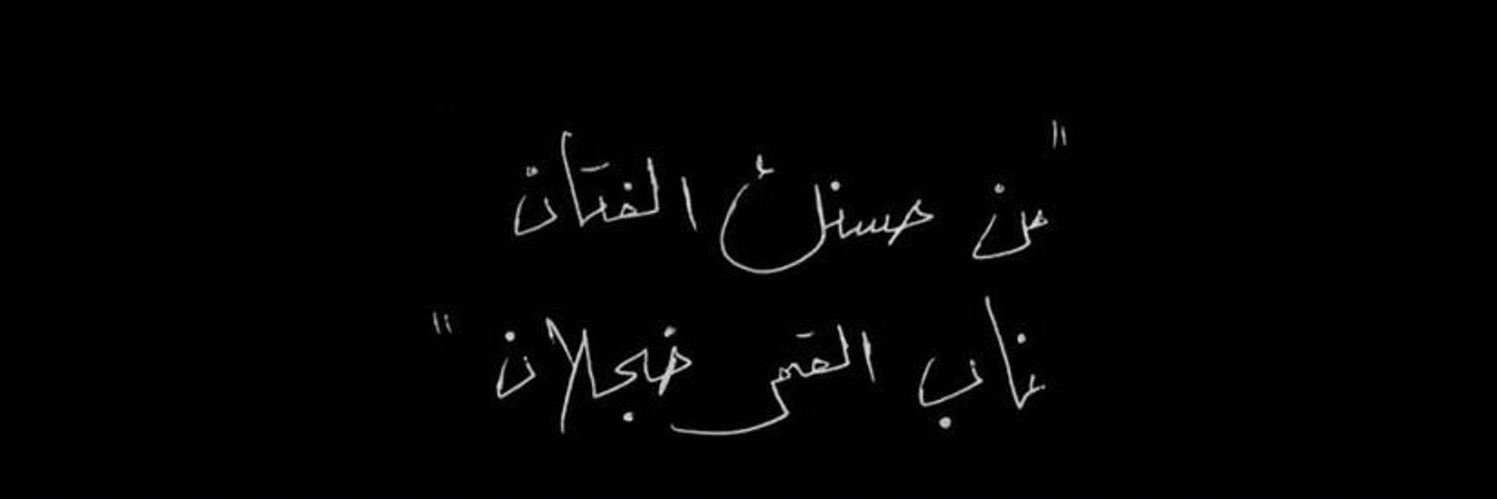 "من حسنك الفتان
غاب القمر خجلان"